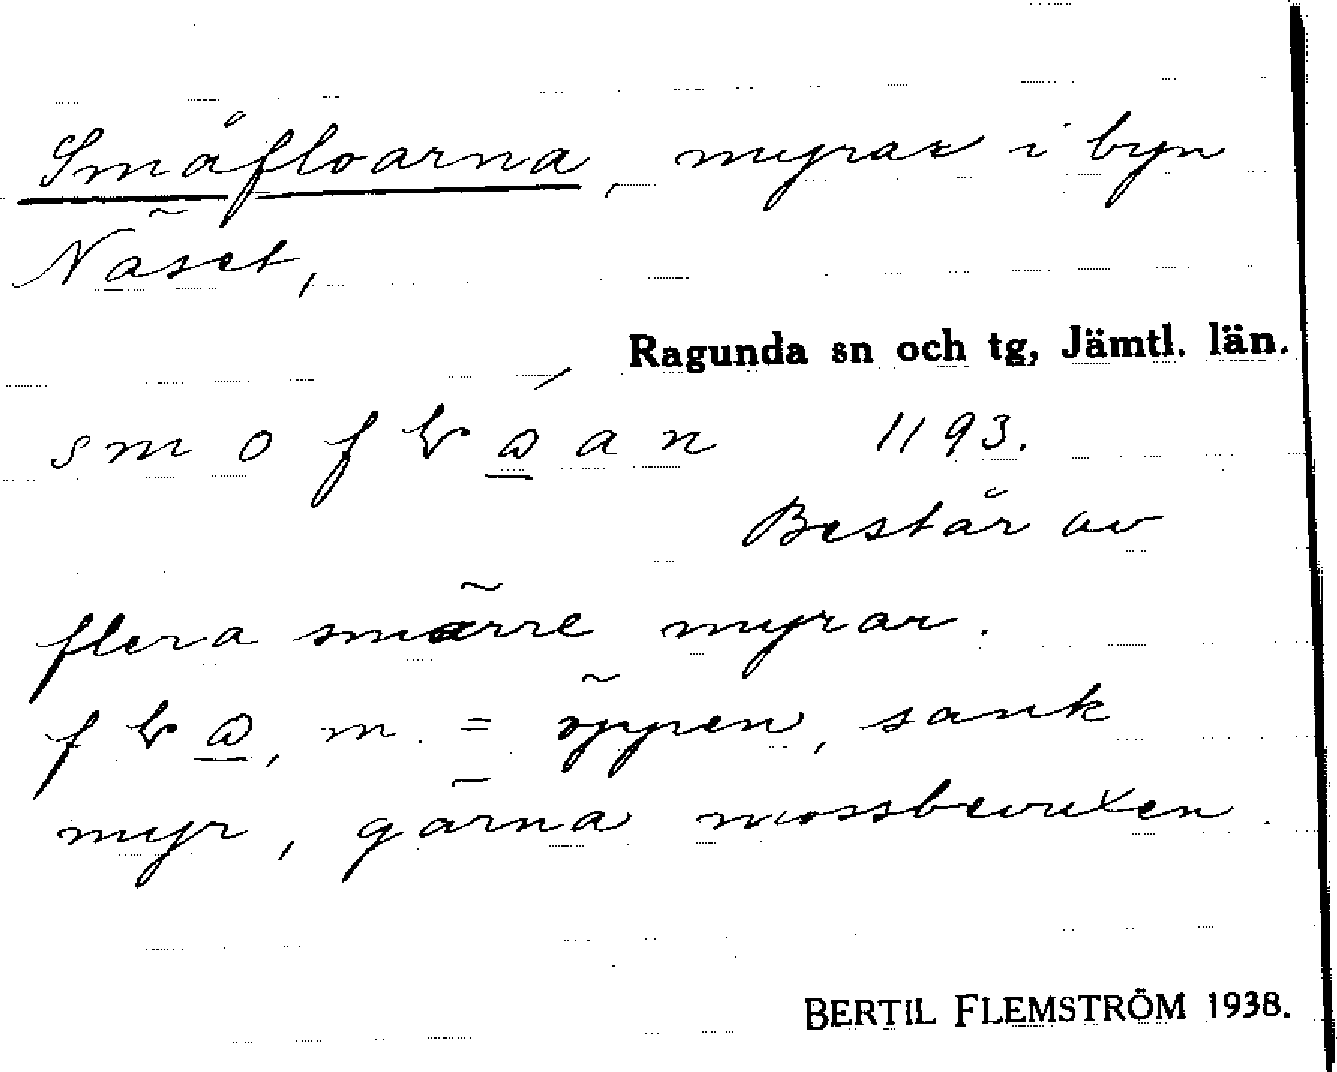 Småfloarna, myrar i byn
Näset,
Ragunda sn och tg, Jämtl. län.
1193.
Består av
flera smärre myrar.
m. = öppen, sank
myr, gärna mossbevuxen.
BERTIL FLEMSTRÖM 1938.